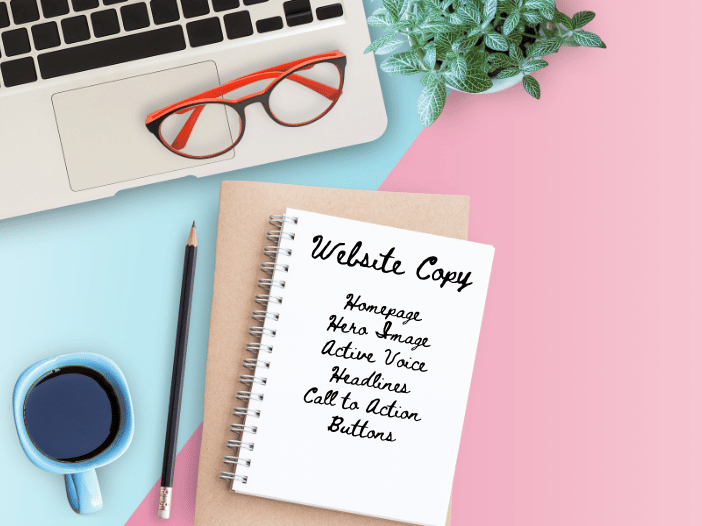 Website Copy
Homepage
Hero Image
Active Voice
Headlines
Call to Action
Buttons